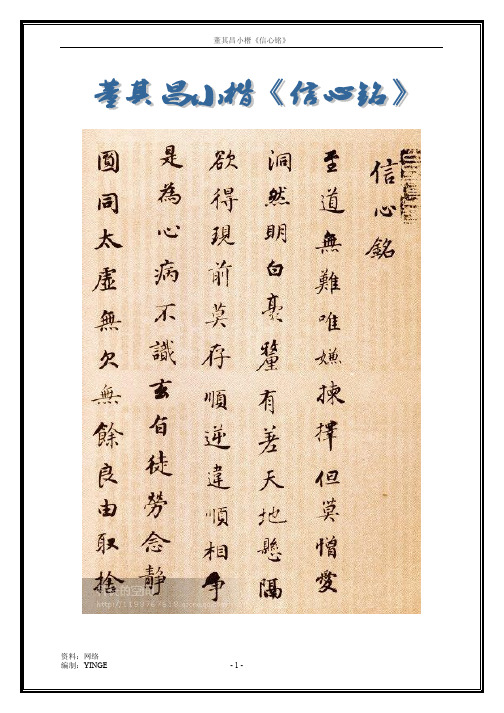 董其昌小楷《信心铭》
董其昌小楷《信心铭》
信心銘
至道無難唯嫌揀擇但莫憎愛
洞然明白毫釐有差天地懸隔
欲得現前莫存順逆違順相争
是為心病不識玄旨徒勞念静
圓同太虛無欠無餘良由取捨
资料：网络
编制：YINGE
- 1 -